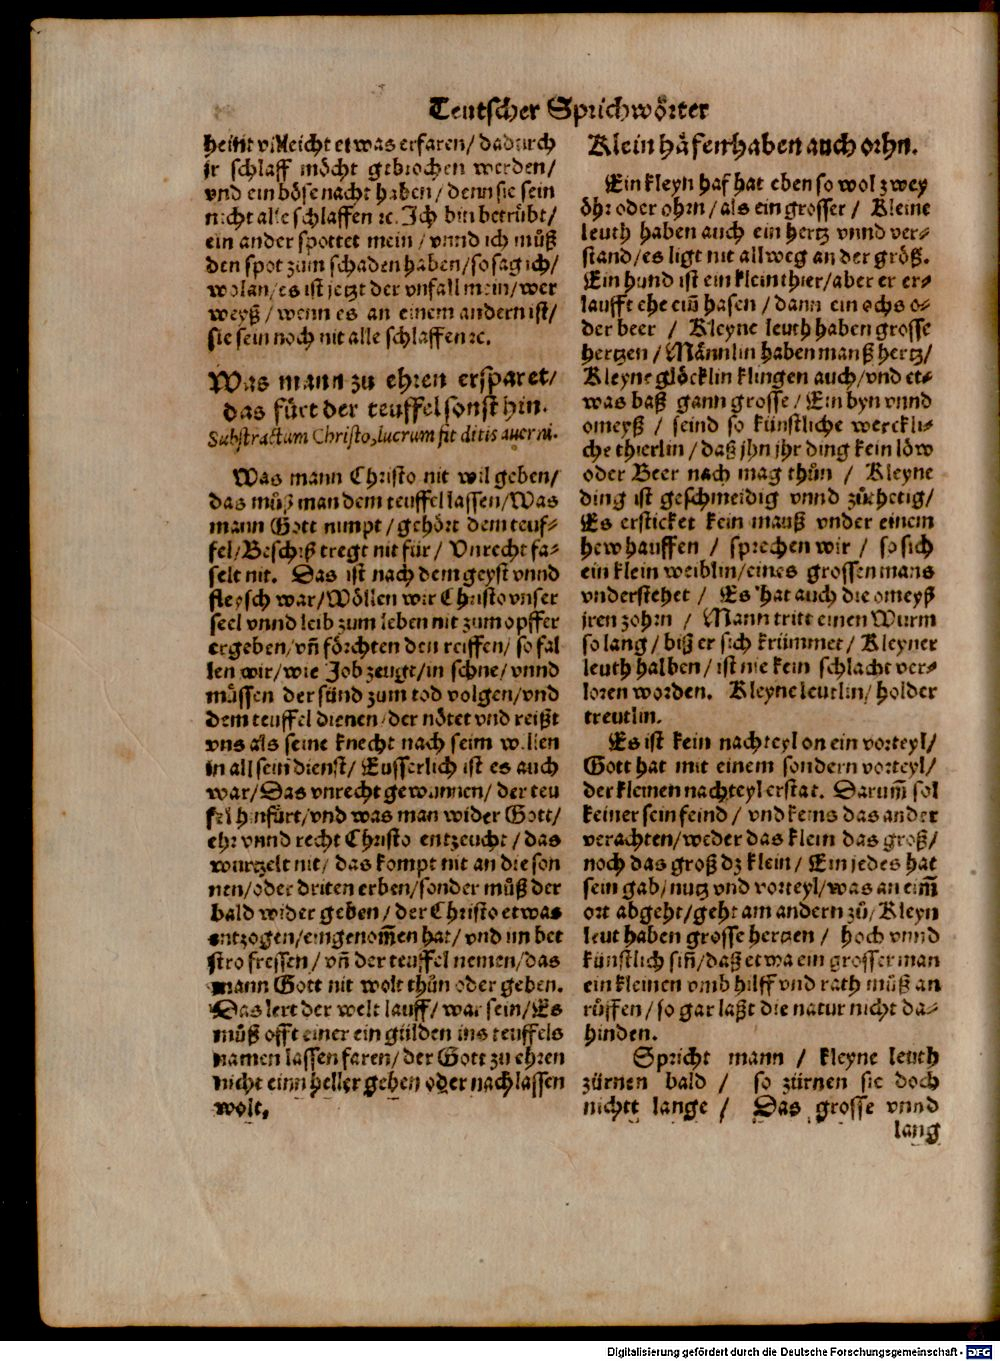 Teutscher Sprichwörter
heint villeicht etwas erfaren/ dadurch
jr schlaff möcht gebrochen werden/
vnd ein böse nacht haben/ denn sie sein
nicht alle schlaffen ⁊c. Ich bin betrübt/
ein ander spottet mein / vnnd ich muͤß
den spot zum schaden haben/ so sag ich/
wolan/ es ist jetzt der vnfall mein/ wer
weyß / wenn es an einem andern ist/
sie sein noch nit alle schlaffen ⁊c.
Was mann zu ehren ersparet/
das fuͤrt der teuffel sonst hin.
Substractum Christo, lucrum fit ditis auerni.
Was mann Christo nit wil geben/
das muͤß man dem teuffel lassen/ Was
mann Gott nimpt / gehört dem teuf-
fel/ Beschiß tregt nit für/ Vnrecht fa-
selt nit. Das ist nach dem geyst vnnd
fleysch war/ Wöllen wir Christo vnser
seel vnnd leib zum leben nit zum opffer
ergeben/ vñ förchten den reiffen/ so fal
len wir/ wie Job zeugt/ in schne/ vnnd
müssen der sünd zum tod volgen/ vnd
dem teuffel dienen/ der nötet vnd reißt
vns als seine knecht nach seim willen
in all sein dienst/ Eusserlich ist es auch
war/ Das vnrecht gewunnen/ der teu
fel hinfürt/ vnd was man wider Gott/
ehr vnnd recht Christo entzeucht / das
wurtzelt nit/ das kompt nit an die son
nen/ oder driten erben/ sonder muͤß der
bald wider geben / der Christo etwas
entzogen/ eingenom̃en hat/ vnd im bet
stro fressen/ vñ der teuffel nemen/ das
mann Gott nit wolt thuͤn oder geben.
Das lert der welt lauff/ war sein/ Es
muͤß offt einer ein gülden ins teuffels
namen lassen faren/ der Gott zu ehren
nicht einn heller geben oder nachlassen
wolt.
Klein häfen haben auch orhn.
Ein kleyn haf hat eben so wol zwey
öhr oder ohrn / als ein grosser / Kleine
leuth haben auch ein hertz vnnd ver-
stand/ es ligt nit allweg an der größ.
Ein hund ist ein klein thier/ aber er er-
laufft ehe ein̄ hasen / dann ein ochs o-
der beer / Kleyne leuth haben grosse
hertzen / Männlin haben manß hertz/
Kleyne glöcklin klingen auch/ vnd et-
was baß gann grosse/ Ein byn vnnd
omeyß / seind so künstliche werckli-
che thierlin / daß jhn jhr ding kein löw
oder Beer nach mag thuͤn / Kleyne
ding ist geschmeidig vnnd zuͤchetig/
Es ersticket kein mauß vnder einem
hew hauffen / sprechen wir / so sich
ein klein weiblin/ eines grossen mans
vnderstehet / Es hat auch die omeyß
jren zohrn / Mann tritt einen Wurm
so lang / biß er sich krümmet/ Kleyner
leuth halben / ist nie kein schlacht ver-
loren worden. Kleyne leutlin/ holder
treutlin.
Es ist kein nachteyl on ein vorteyl/
Gott hat mit einem sondern vorteyl/
der kleinen nachteyl erstat. Darum̃ sol
keiner sein feind / vnd keins das ander
verachten/ weder das klein das groß/
noch das groß dz klein / Ein jedes hat
sein gab/ nutz vnd vorteyl/ was an eim̃
ort abgeht/ geht am andern zuͤ/ Kleyn
leut haben grosse hertzen / hoch vnnd
künstlich sin̄/ daß etwa ein grosser man
ein kleinen vmb hilff vnd rath muͤß an
rüffen/ so gar laßt die natur nicht da-
hinden.
Spricht mann / kleyne leuth
zürnen bald / so zürnen sie doch
nichtt lange / Das grosse vnnd
lang
Digitalisierung gefördert durch die Deutsche Forschungsgemeinschaft - DFG